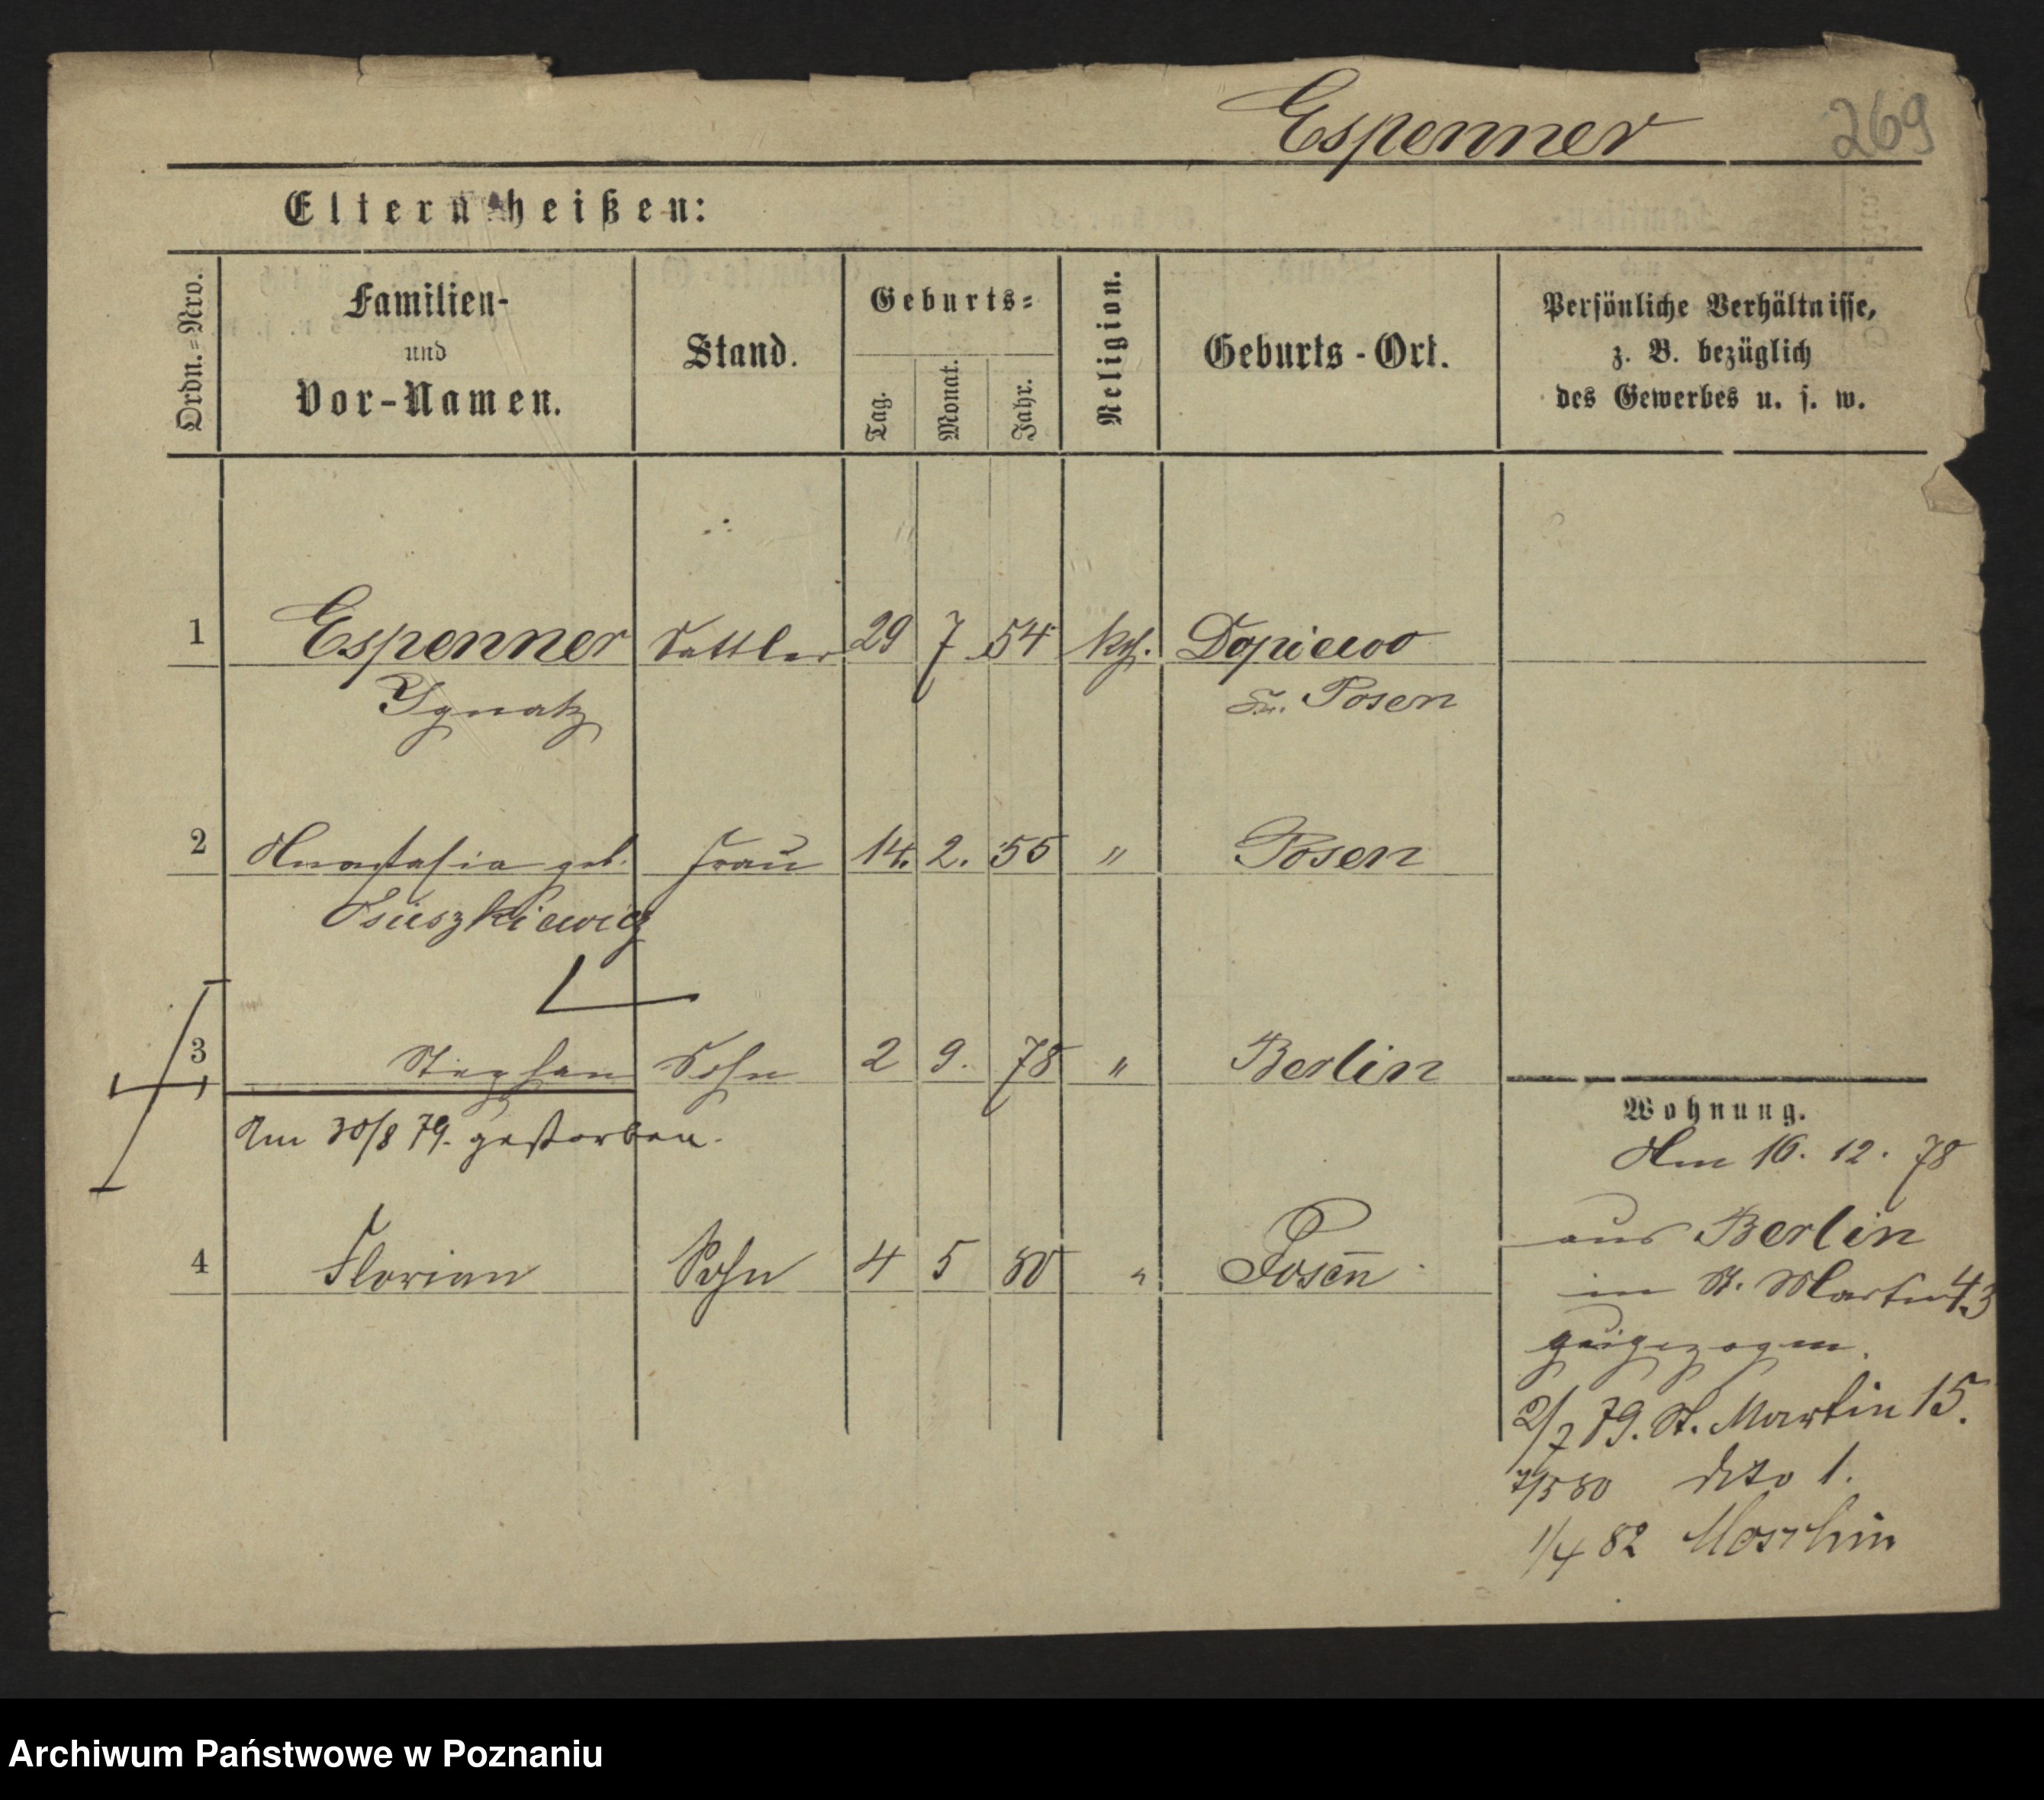 Espenner
269
Eltern heißen:
Ordn.=Nro.
Familien-
und
Vor-Namen.
Stand.
Geburts=
Tag.
Monat.
Jahr.
Religion.
Geburts-Ort.
Persönliche Verhältnisse,
z. B. bezüglich
des Gewerbes u. s. w.
1 Espenner Sattler 29 7 54 kth. Dopiewo
Ignatz Kr. Posen
2 Anastasia geb. Frau 14. 2. 55 " Posen
Osieszkiewicz
3 Stephan Sohn 2 9. 78 " Berlin
Am 30/8 79. gestorben.
4 Florian Sohn 4 5 80 " Posen
Wohnung.
Am 16. 12. 78
aus Berlin
in St. Martin 43
zugezogen.
2/7 79. St. Martin 15.
7/5 80 dito 1.
1/4 82 Moschin
Archiwum Państwowe w Poznaniu